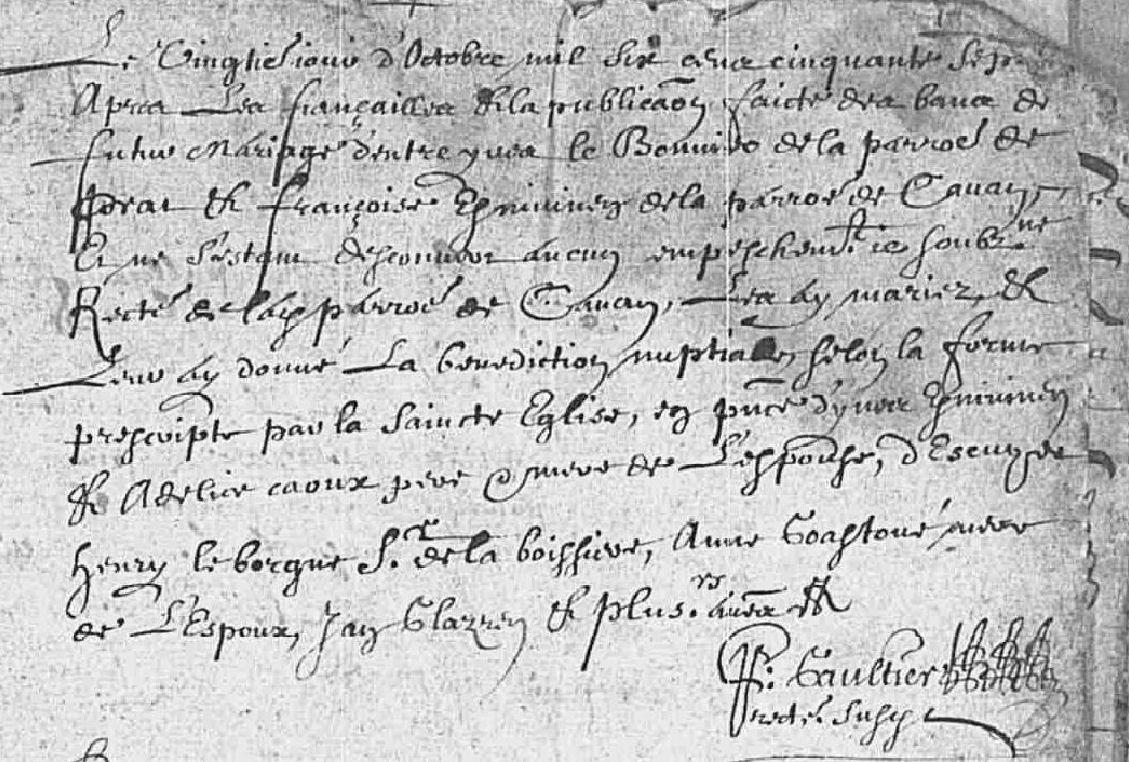 Le Vingtiesme d'Octobre mil six cent cinquante sept
Apres Les fiançailles & la publicaon faicte des bancs de
futur Mariage d'entre yves le Bonni de la parroe de
Prat & françoise de la parroe de Cavan,
Et ne s'estant descouvert aucun empeschemt. ie soubz.ne
Recte de lad parroe de Cavan, Les ay mariez, &
Leur ay donné La benediction nuptialle, selon la forme
prescripte par la saincte Eglise, en pnce d'yves
& Adelice caoux pere & mere de L'espouse, d'Escuyer
Henry le borgne Sr. de la boissiere, Anne Goastoué mere
de L'Espoux, Jan Glazren & plus.rs aues &
F. Gaultier
recte. susd